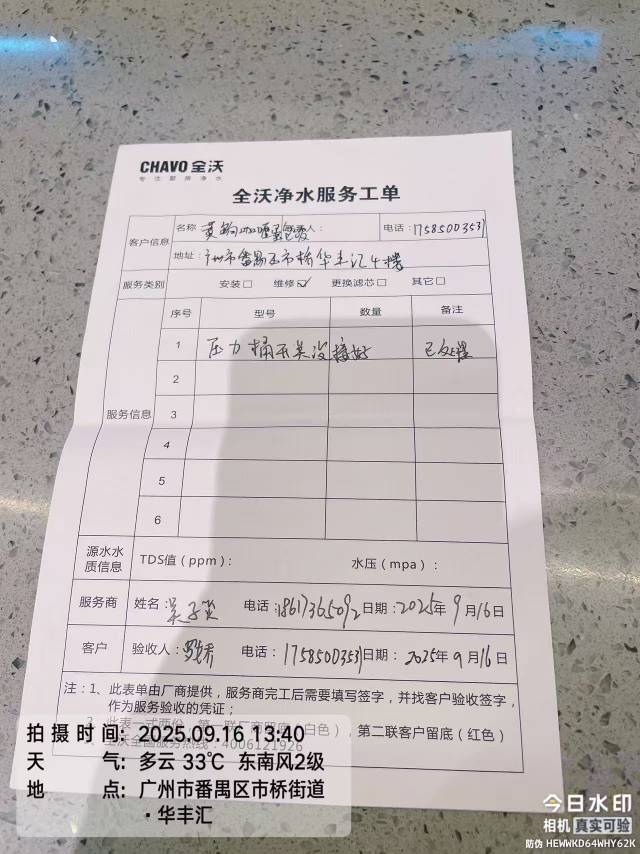 CHAVO 全沃
专注厨房净水
全沃净水服务工单
客户信息
名称: 黄 咖喱 人: 电话: 17585003531
地址: 广州市番禺区市桥华丰汇4楼
服务类别 安装□ 维修☑ 更换滤芯□ 其它□
服务信息
序号 型号 数量 备注
1 压力桶开关没接好 已处理
2
3
4
5
6
源水水质信息 TDS值(ppm): 水压(mpa):
服务商 姓名: 吴 电话: 18617365092 日期: 2025年9月16日
客户 验收人: 电话: 17585003531 日期: 2025年9月16日
注:1、此表单由厂商提供,服务商完工后需要填写签字,并找客户验收签字,
作为服务验收的凭证;
2、此表一式两份,第一联厂商留底(白色),第二联客户留底(红色)
3、全沃全国服务热线:4006121926
拍摄时间: 2025.09.16 13:40
天气: 多云 33℃ 东南风2级
地点: 广州市番禺区市桥街道
·华丰汇
今日水印
相机 真实可验
防伪 HEWWKD64WHY62K